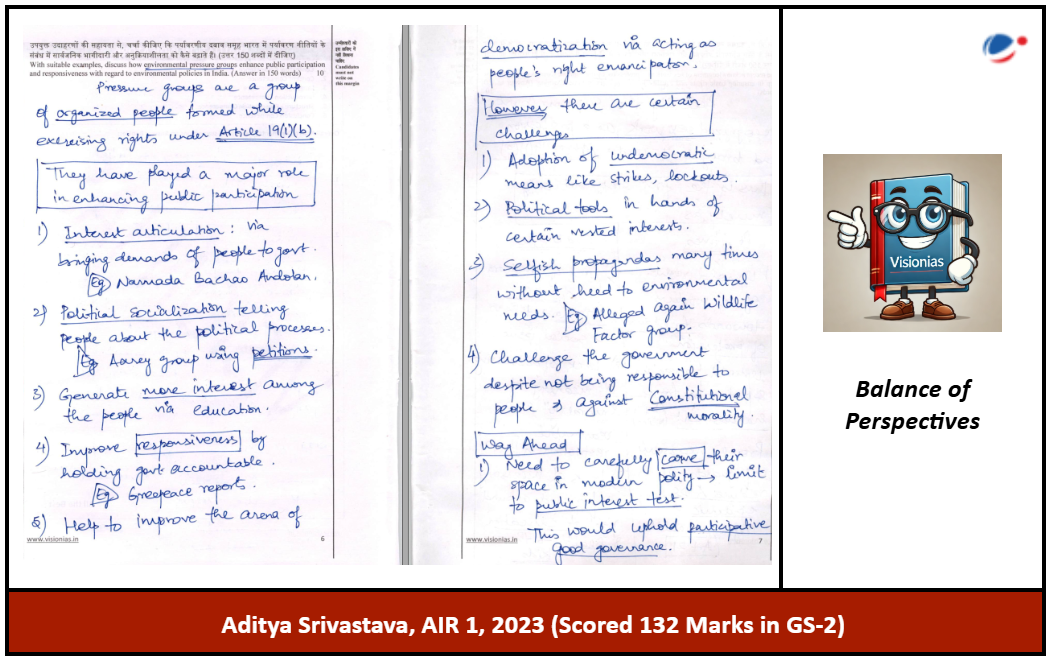 उपयुक्त उदाहरणों की सहायता से, चर्चा कीजिए कि पर्यावरणीय दबाव समूह भारत में पर्यावरण नीतियों के
संबंध में सार्वजनिक भागीदारी और अनुक्रियाशीलता को कैसे बढ़ाते हैं। (उत्तर 150 शब्दों में दीजिए)
With suitable examples, discuss how environmental pressure groups enhance public participation
and responsiveness with regard to environmental policies in India. (Answer in 150 words) 10
उम्मीदवारों को
इस हाशिए में
नहीं लिखना
चाहिए
Candidates
must not
write on
this margin
Pressure groups are a group
of organized people formed while
exercising rights under Article 19(1)(b).
They have played a major role
in enhancing public participation
1) Interest articulation: via
bringing demands of people to govt.
Eg Narmada Bachao Andolan.
2) Political socialization telling
people about the political processes.
Eg Aarey group using petitions.
3) Generate more interest among
the people via education.
4) Improve responsiveness by
holding govt accountable.
Eg Greepeace reports.
5) Help to improve the arena of
www.visionias.in
6
democratization via acting as
people's right emancipation.
However, there are certain
challenges
1) Adoption of undemocratic
means like strikes, lockouts.
2) Political tools in hands of
certain vested interests.
3) Selfish propagandas many times
without heed to environmental
needs. Eg Alleged again Wildlife
Factor group.
4) Challenge the government
despite not being responsible to
people & against Constitutional
morality.
Way Ahead
1) Need to carefully carve their
space in modern polity → limit
to public interest test.
This would uphold participative
good governance.
www.visionias.in
7
Visionias
Balance of
Perspectives
Aditya Srivastava, AIR 1, 2023 (Scored 132 Marks in GS-2)